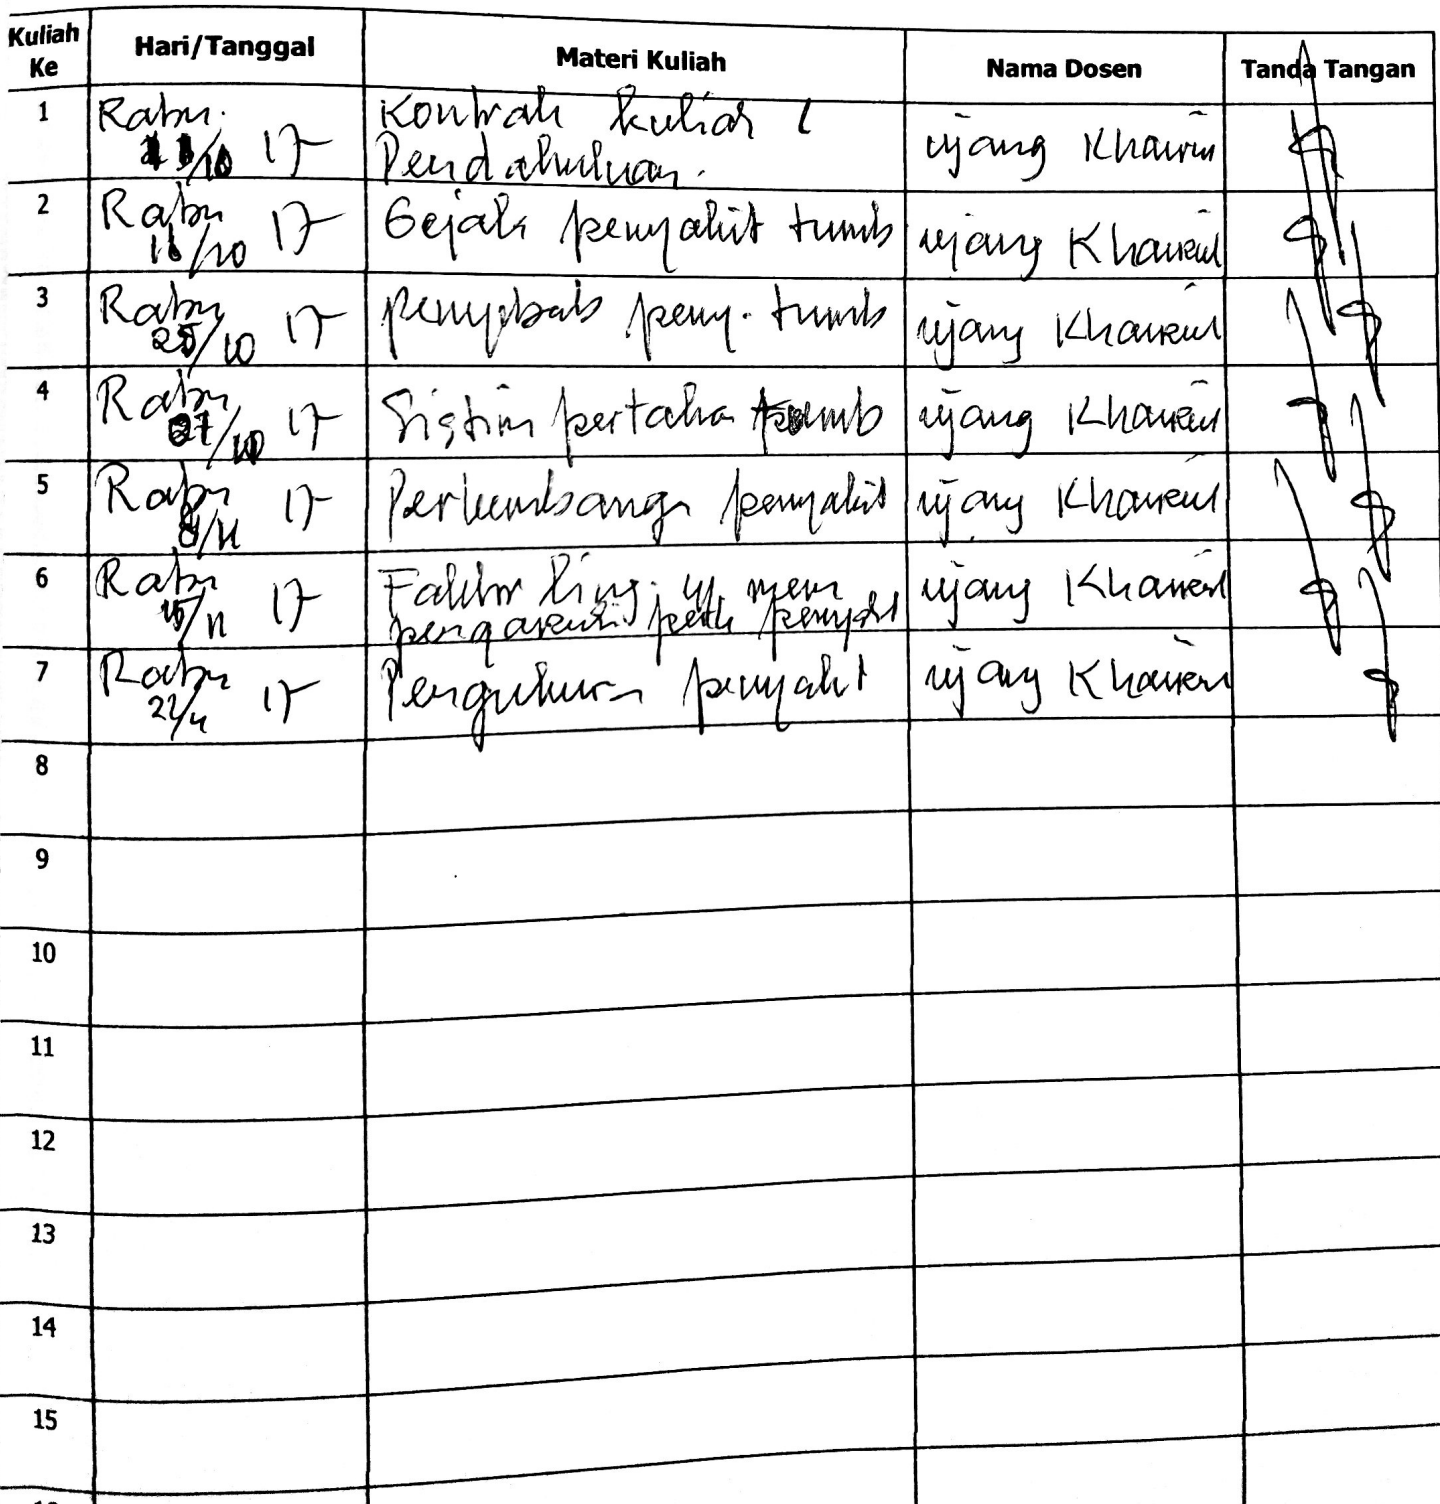 Kuliah Ke Hari/Tanggal Materi Kuliah Nama Dosen Tanda Tangan
1 Rabu. 11/10 17 Kontrak kuliah & Pendahuluan. ujang Khairul
2 Rabu 18/10 17 Gejala penyakit tumb ujang Khairul
3 Rabu 25/10 17 penyebab peny. tumb ujang Khairul
4 Rabu 17 Sistim pertaha tumb ujang Khairul
5 Rabu 8/11 17 Perkembangn penyakit ujang Khairul
6 Rabu 15/11 17 Faktor ling. yg mem pengaruhi penyakt ujang Khairul
7 Rabu 22/11 17 Pengukurn penyakit ujang Khairul
8
9
10
11
12
13
14
15